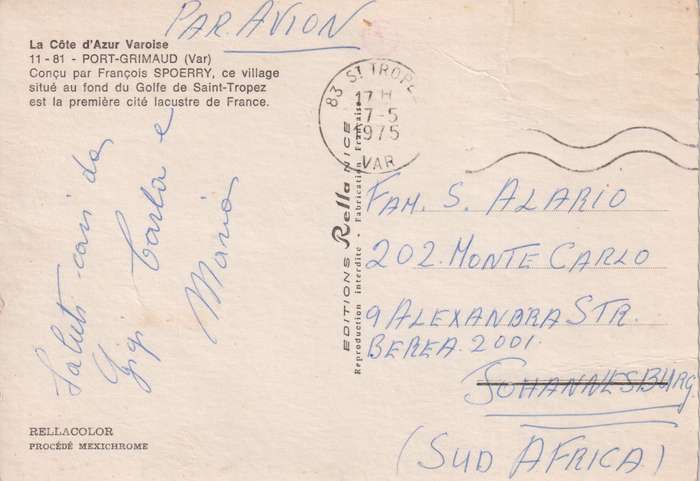 PAR AVION
La Côte d'Azur Varoise
11-81 - PORT-GRIMAUD (Var)
Conçu par François SPOERRY, ce village
situé au fond du Golfe de Saint-Tropez
est la première cité lacustre de France.
83 ST TROPEZ
17 H
7-5
1975
VAR
Saluti cari da
Gigi Carla e
Maria
EDITIONS Rella NICE
Reproduction interdite • Fabrication Française
FAM. S. ALARIO
202. MONTE CARLO
9 ALEXANDRA STR.
BEREA. 2001.
JOHANNESBURG.
(SUD AFRICA)
RELLACOLOR
PROCÉDÉ MEXICHROME